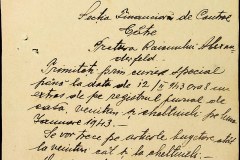 Secția Financiară de Control
Către
Pretura Raionului
Trimiteți prin curier special
până la data de 12/II 943 ora 8 un
extras de pe registrul jurnal de
casă, venituri și cheltueli pe luna
Ianuarie 1943.
Se vor trece pe articole bugetare atât
la venituri cât și la cheltueli